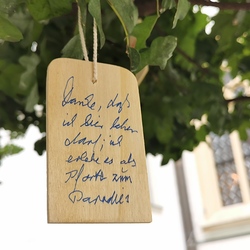 Danke, daß
ich hier leben
darf; ich
erlebe es als
Pforte zum
Paradies